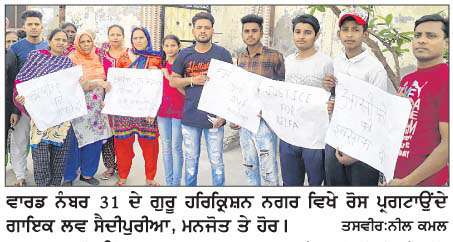 JUSTICE
ਵਾਰਡ ਨੰਬਰ 31 ਦੇ ਗੁਰੂ ਹਰਿਕ੍ਰਿਸ਼ਨ ਨਗਰ ਵਿਖੇ ਰੋਸ ਪ੍ਰਗਟਾਉਂਦੇ
ਗਾਇਕ ਲਵ ਸੈਦੀਪੁਰੀਆ, ਮਨਜੋਤ ਤੇ ਹੋਰ। ਤਸਵੀਰ:ਨੀਲ ਕਮਲ